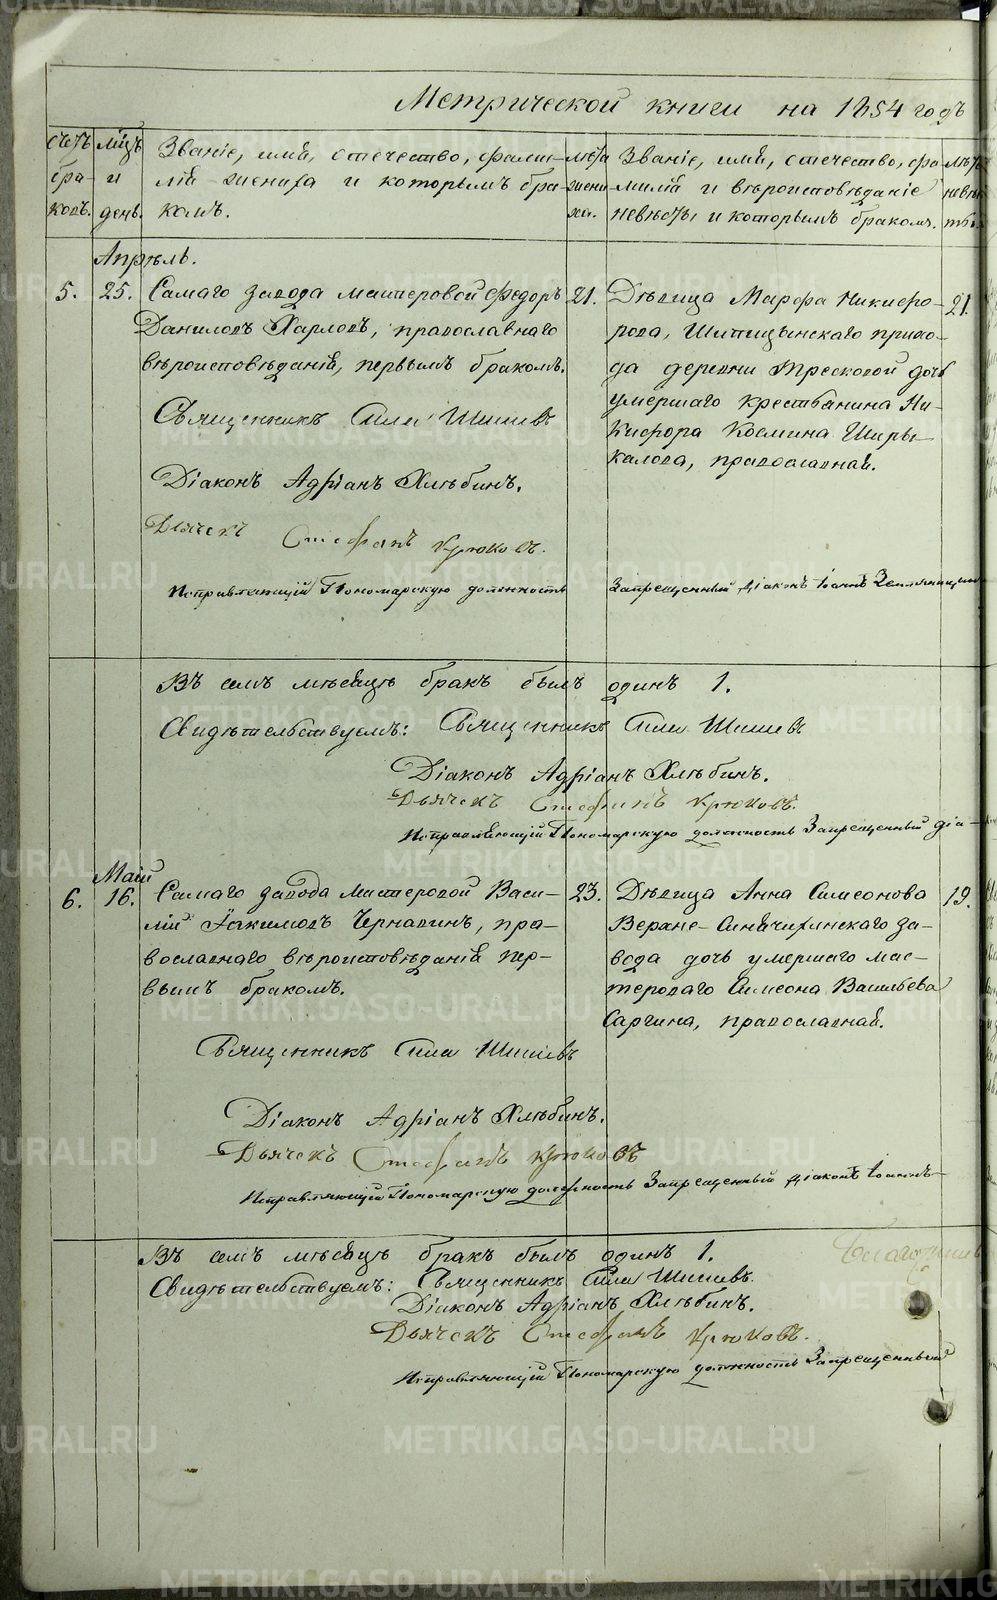 Метрической книги на 1854 годъ
Счетъ браковъ.
Мцъ и день.
Званіе, имя, отечество, фами-
лія жениха и которымъ бра-
комъ.
Лѣта жени-
ха.
Званіе, имя, отечество, фа-
милія и вѣроисповѣданіе
невѣсты и которымъ бракомъ.
Лѣта невѣс-
ты.
Апрѣль.
5. 25. Самаго завода мастеровой Федоръ 21. Дѣвица Марфа Никифо- 21.
Даниловъ Харловъ, православнаго
рова, Шипицынскаго прихо-
вѣроисповѣданія, первымъ бракомъ.
да деревни Тресковой дочь
умершаго крестьянина Ни-
Священникъ Сила Шишевъ
кифора Космина Ширы-
калова, православная.
Діаконъ Адріанъ Хлѣбинъ.
Дьячекъ Стефанъ Крюковъ.
Исправляющій Пономарскую должность Запрещенный Діаконъ Іоаннъ
Въ семъ мѣсяцѣ бракъ былъ одинъ 1.
Свидѣтельствуемъ: Священникъ Сила Шишевъ
Діаконъ Адріанъ Хлѣбинъ.
Дьячекъ Стефанъ Крюковъ.
Исправляющій Пономарскую должность Запрещенный діа-
Май
6. 16. Самаго завода мастеровой Васи- 23. Дѣвица Анна Симеонова 19.
лій Іакимовъ Чернавинъ, пра-
Верхне-Синячихинскаго за-
вославнаго вѣроисповѣданія пер-
вода дочь умершаго мас-
вымъ бракомъ.
тероваго Симеона Васильева
Саргина, православная.
Священникъ Сила Шишевъ
Діаконъ Адріанъ Хлѣбинъ.
Дьячекъ Стефанъ Крюковъ
Исправляющій Пономарскую должность Запрещенный Діаконъ Іоаннъ
Въ семъ мѣсяцѣ бракъ былъ одинъ 1.
Свидѣтельствуемъ: Священникъ Сила Шишевъ.
Діаконъ Адріанъ Хлѣбинъ.
Дьячекъ Стефанъ Крюковъ.
Исправляющій Пономарскую должность Запрещенный
METRIKI.GASO-URAL.RU